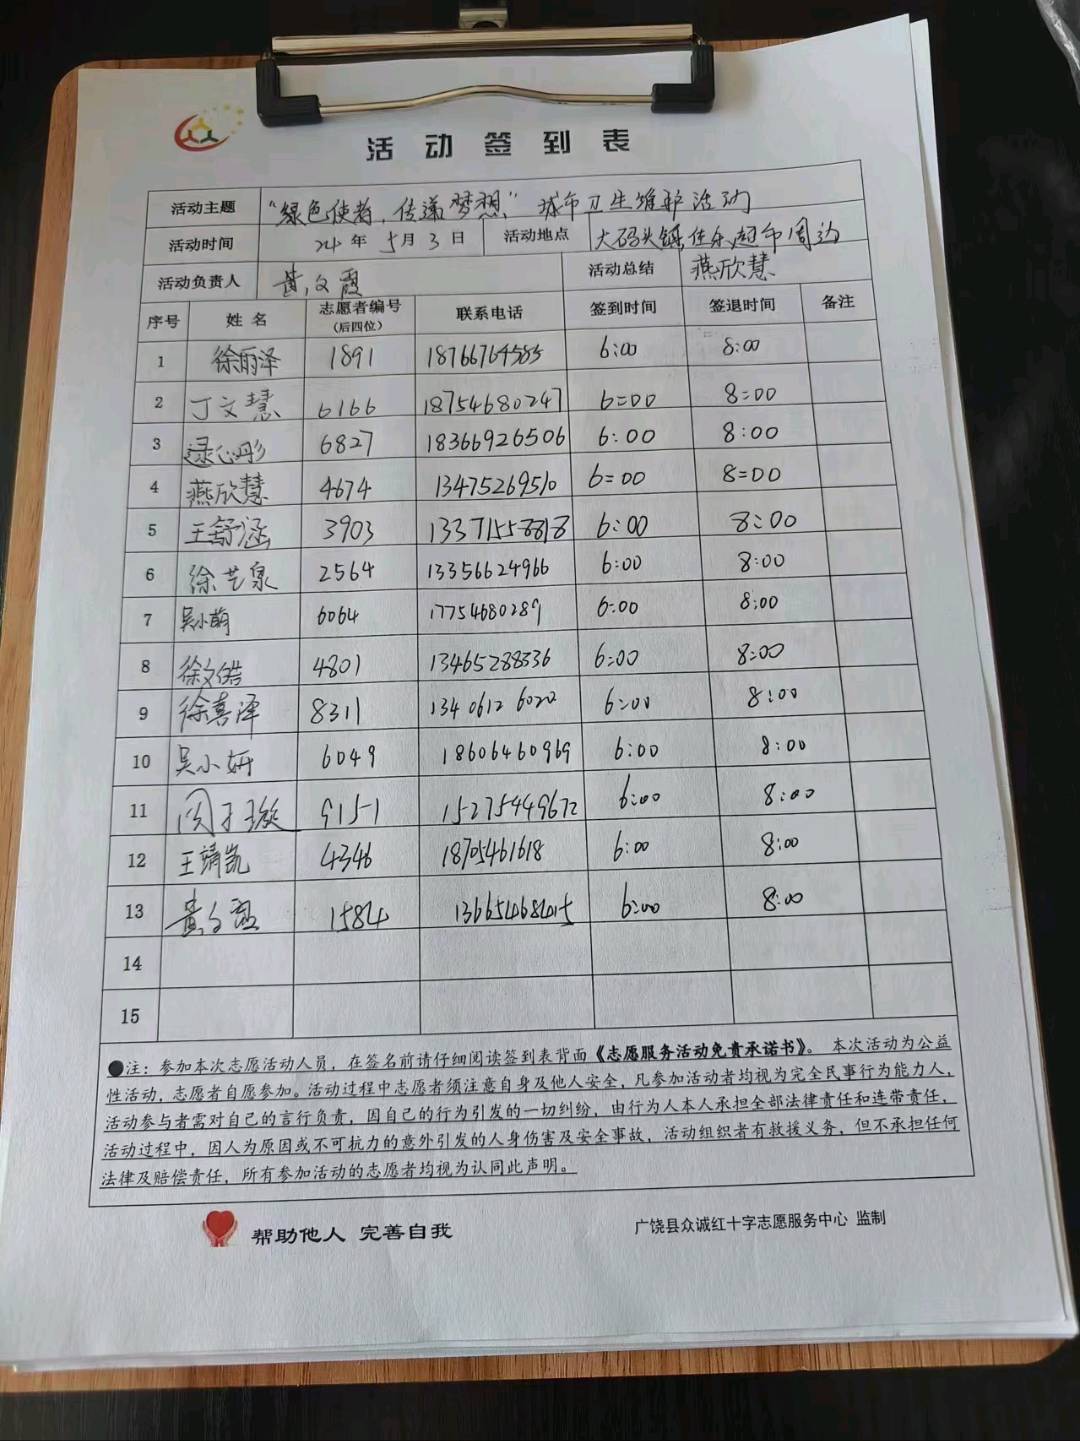 活动签到表
活动主题 “绿色使者，传递梦想” 城市卫生维护活动
活动时间 24年5月3日 活动地点 大码头镇佳乐超市周边
活动负责人 黄文霞 活动总结 燕欣慧
序号 姓名 志愿者编号 联系电话 签到时间 签退时间 备注
(后四位)
1 徐雨泽 1891 18766764583 6:00 8:00
2 丁文慧 6166 18754680247 6=00 8=00
3 6827 18366926506 6:00 8:00
4 燕欣慧 4674 13475269510 6=00 8=00
5 王舒涵 3903 13371558818 6:00 8:00
6 徐艺泉 2564 13356624966 6:00 8:00
7 吴小萌 6064 17754680289 6:00 8:00
8 徐文皓 4801 13465288336 6:00 8:00
9 徐喜泽 8311 13406126022 6:00 8:00
10 吴小妍 6049 18606460969 6:00 8:00
11 闵子璇 9151 15275449672 6:00 8:00
12 王靖凯 4346 18705461618 6:00 8:00
13 黄文霞 1584 13665468415 6:00 8:00
14
15
●注：参加本次志愿活动人员，在签名前请仔细阅读签到表背面《志愿服务活动免责承诺书》。本次活动为公益
性活动，志愿者自愿参加。活动过程中志愿者须注意自身及他人安全，凡参加活动者均视为完全民事行为能力人，
活动参与者需对自己的言行负责，因自己的行为引发的一切纠纷，由行为人本人承担全部法律责任和连带责任，
活动过程中，因人为原因或不可抗力的意外引发的人身伤害及安全事故，活动组织者有救援义务，但不承担任何
法律及赔偿责任，所有参加活动的志愿者均视为认同此声明。
帮助他人 完善自我 广饶县众诚红十字志愿服务中心 监制